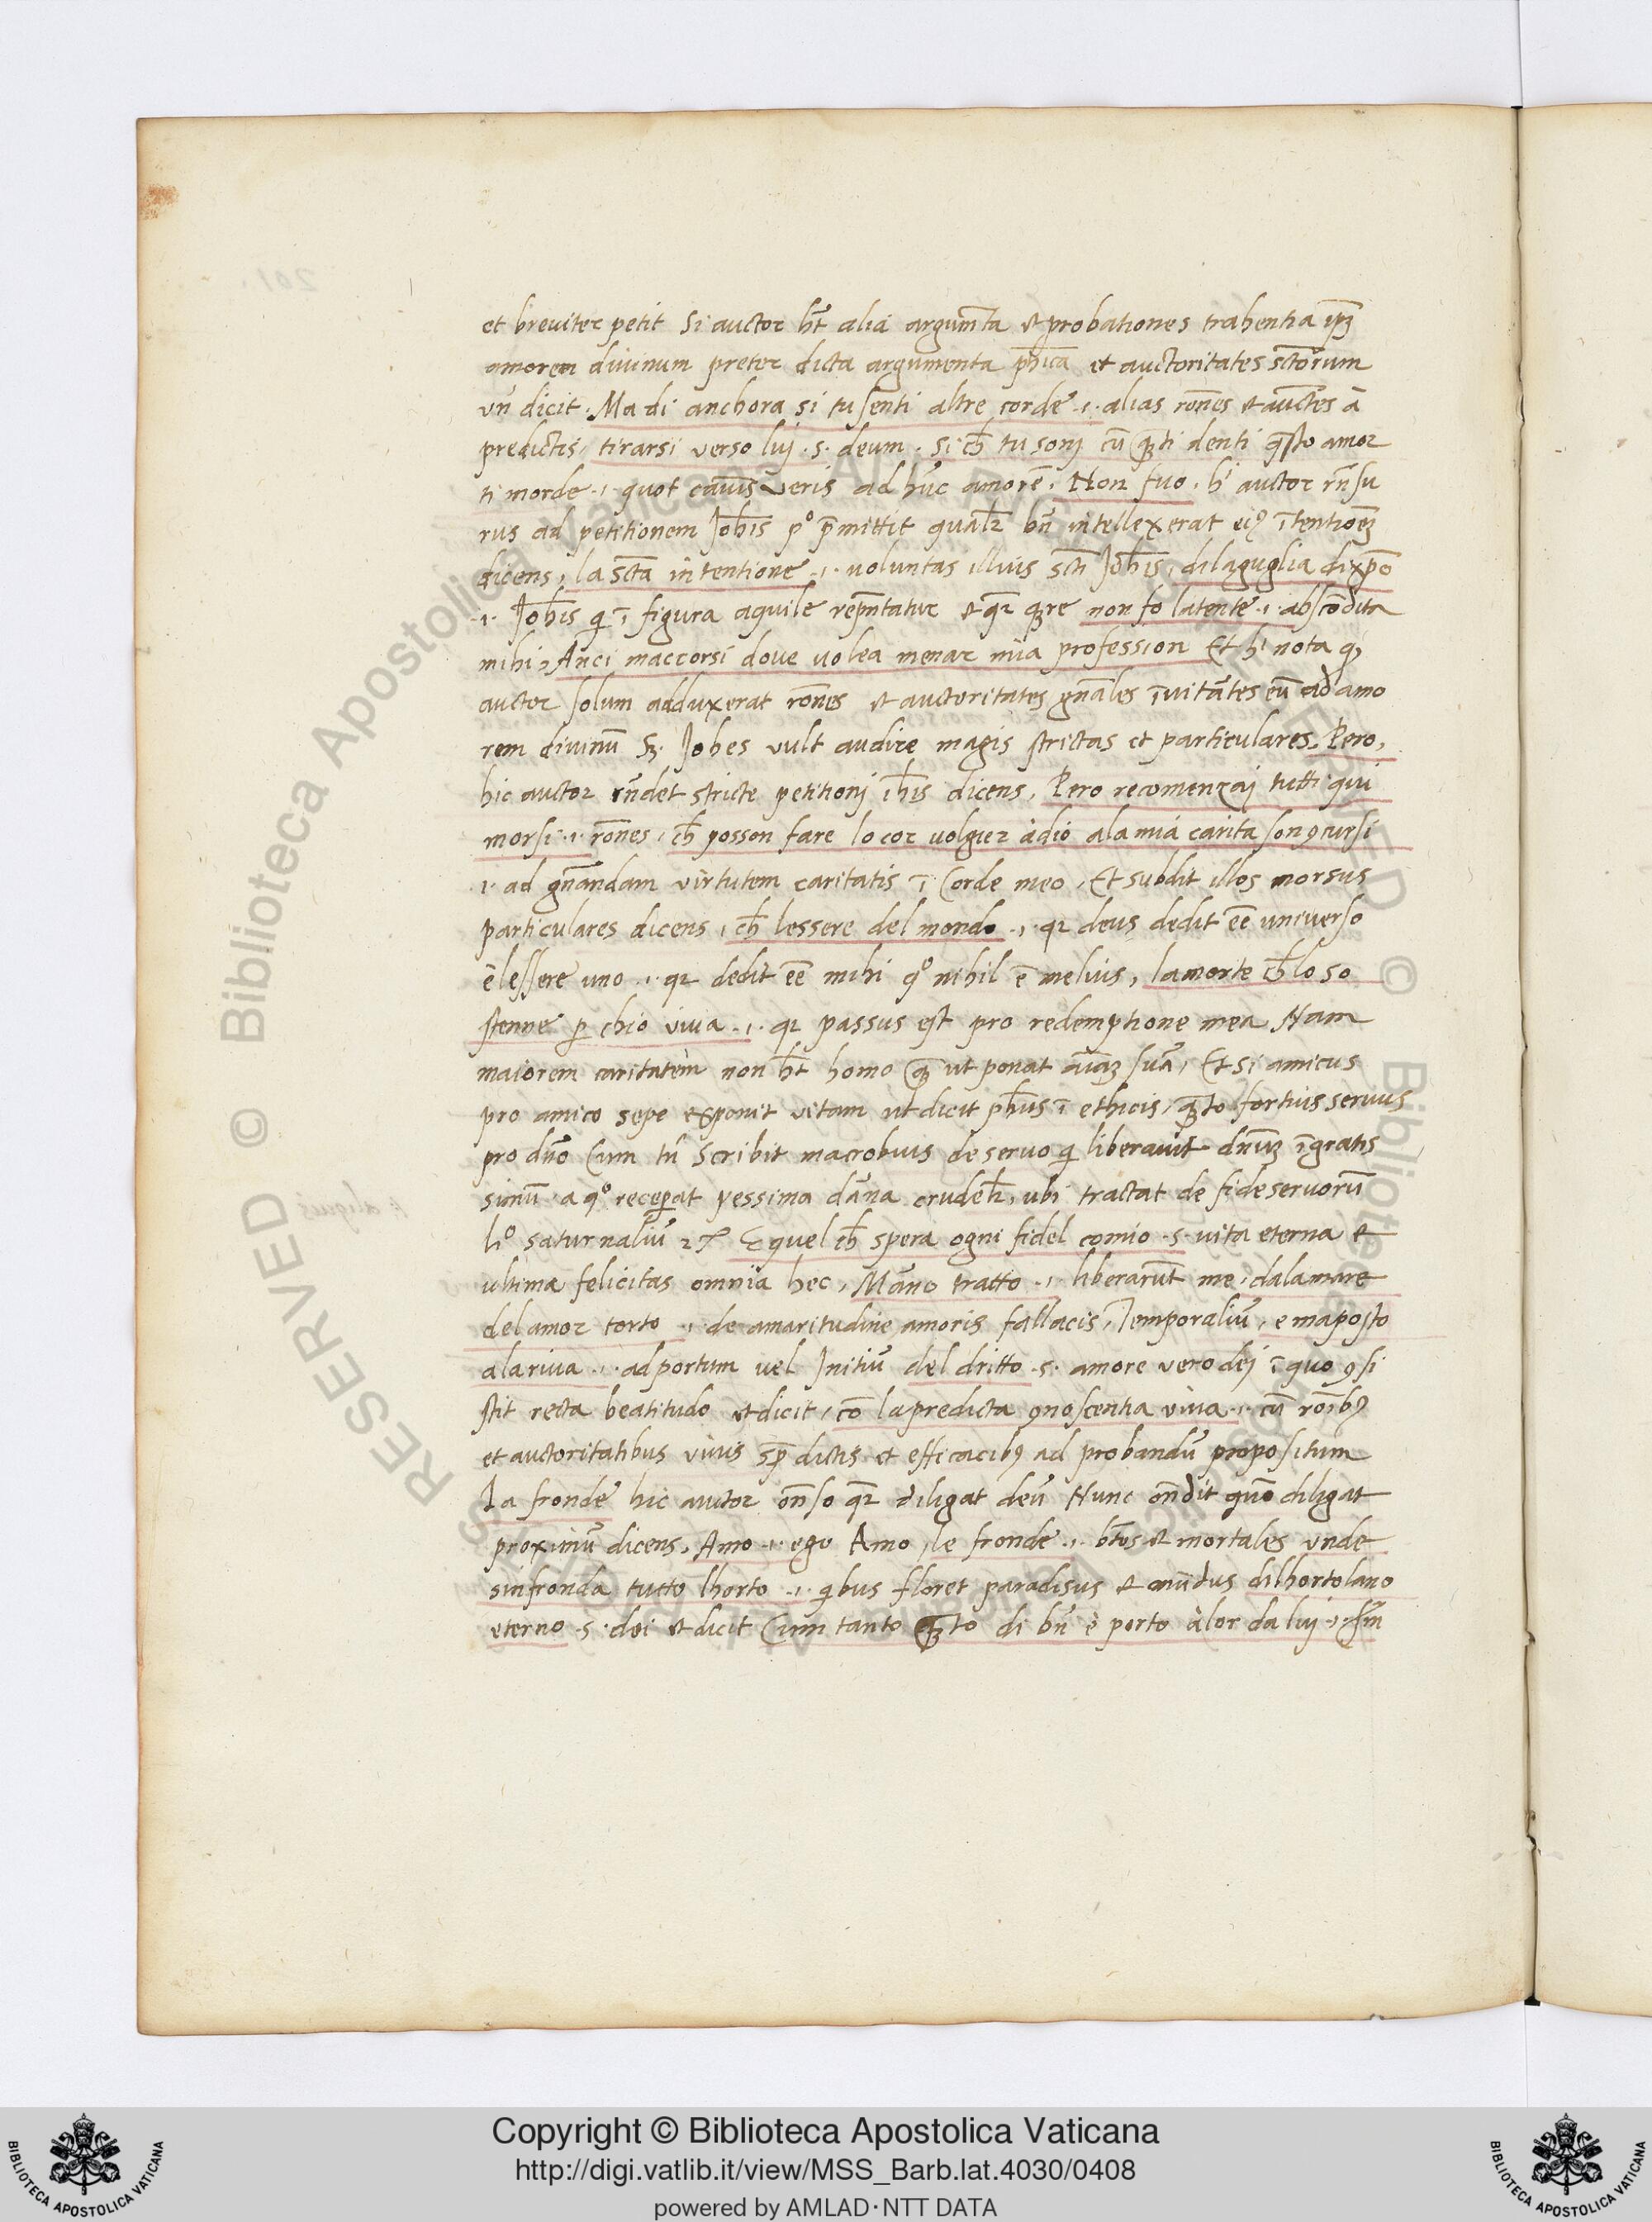 et breviter petit Si auctor hr̄t alia argumr̄ta et probationes trahentia ip̄ꝫ
amorem divinum preter dicta argumenta ph̄ica et auctoritates sctōrum
vn̄ dicit. Ma di anchora si tu senti altre corde .i. alias rōnes et auctēs ā
predictis, tirarsi verso luj .s. deum. si ch̄ tu sonj cū qꝫti denti qsto amor
ti morde .i. quot causis veris ad hūc amorē. Non fuo. hi auctor rn̄su
rus ad petitionem Joh̄is po p̄mittit qualr bn̄ intellexerat eiꝰ ītentioēꝫ
dicens, la sctā intentione .i. voluntas illius scti Joh̄is, dilaguglia dixp̄o
.i. Joh̄is qi ī figura aquile rep̄ntatur et qr qꝫre non fo latente .i. abscōdita
mihi, Anci maccorsi dove volea menar mia profession Et hi nota qꝫ
auctor solum adduxerat rōnes et auctoritates gn̄ales īvitātes eū ad amo
rem divinū Sꝫ. Johes vult audire magis strictas et particulares. Pero,
hic auctor rn̄det stricte petitionj ih̄is dicens, Pero recomenzaj tutti qui
morsi .i. rōnes, ch̄ posson fare lo cor volger àdio ala mia carita son ꝯcursi
.i. ad gn̄andam virtutem caritatis ī Corde meo, Et subdit illos morsus
particulares dicens, ch̄ lessere del mondo .i. qr deus dedit ēē universo
ēlessere uno .i. qr dedit ēē mihi qo nihil ē melius, la morte ch̄ lo so
stenne p̱ chio viva .i. qr passus est pro redemptione mea Nam
maiorem caritatem non hr̄t homo qꝫ ut ponat aīaꝫ suā, Et si amicus
pro amico sepe exponit vitam ut dicit ph̄us ī ethicis, qꝫto fortius servus
pro dn̄o Cum tn̄ Scribit macrobius de servo qi liberavit dn̄uꝫ īgratis
simū a qo recep̱at pessima dāna crudelr, ubi tractat de fide servorū
lio saturnaliū 27 E quel ch̄ spera ogni fidel comio .s. vita eterna et
ultima felicitas omnia hec, Māno tratto .i. liberarūt me, dala mare
del amor torto .i. de amaritudine amoris fallacis, Temporaliū, e maposto
ala riva .i. ad portum vel Initiū del dritto .s. amore vero dej ī quo ꝯsi
stit recta beatitudo et dicit, cō la predicta ꝯnoscentia viva .i. cū rōibꝰ
et auctoritatibus vivis sp̄ dictis et efficacibꝰ ad probandū propositum
La fronde hic auctor on̄so qr diligat deū Nunc on̄dit quō diligat
proximū dicens, Amo .i. ego Amo, le fronde .i. btōs et mortales unde
sinfronda tutto lhorto .i. qibus floret paradisus et mūdus dilhortolano
eterno .s. dei et dicit Cum tanto qꝫto di bn̄ è porto àlor da luj .i. sm̄